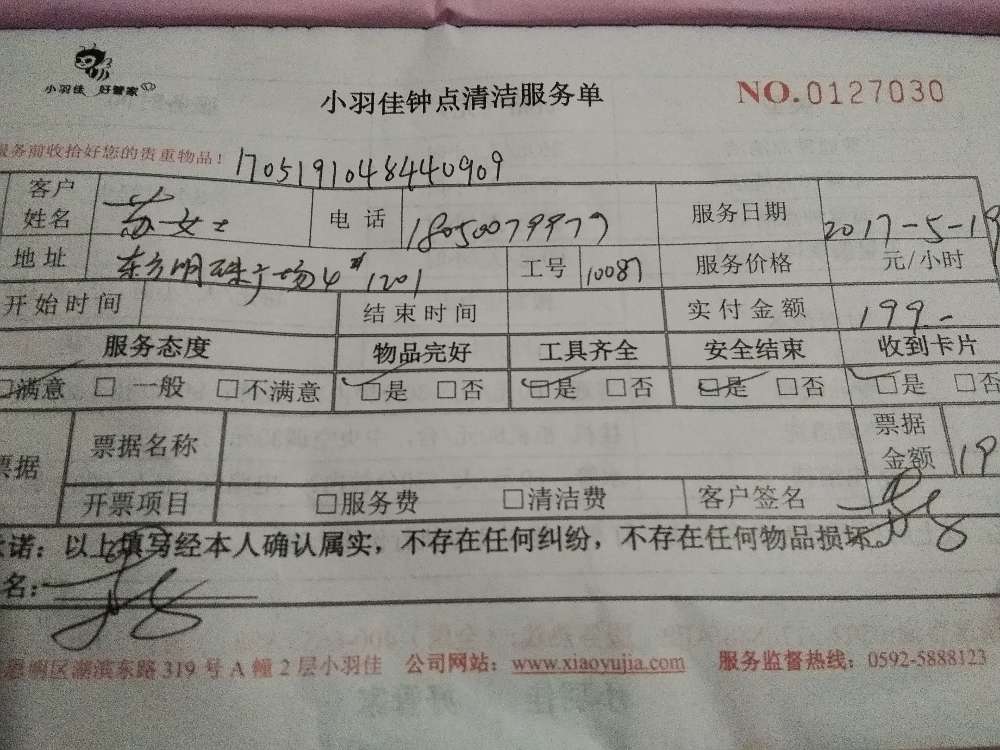 小羽佳 好管家
小羽佳钟点清洁服务单
NO.0127030
服务前收拾好您的贵重物品！
1705191048440909
客户姓名 苏女士 电话 18050079979 服务日期 2017-5-19
地址 东方明珠广场4# 1201 工号 10087 服务价格 元/小时
开始时间 结束时间 实付金额 199-
服务态度 物品完好 工具齐全 安全结束 收到卡片
□满意 □一般 □不满意 □是 □否 □是 □否 □是 □否 □是 □否
票据 票据名称 票据金额 19
开票项目 □服务费 □清洁费 客户签名
诺：以上填写经本人确认属实，不存在任何纠纷，不存在任何物品损坏。
名：
思明区湖滨东路319号A幢2层小羽佳 公司网站：www.xiaoyujia.com 服务监督热线：0592-5888123